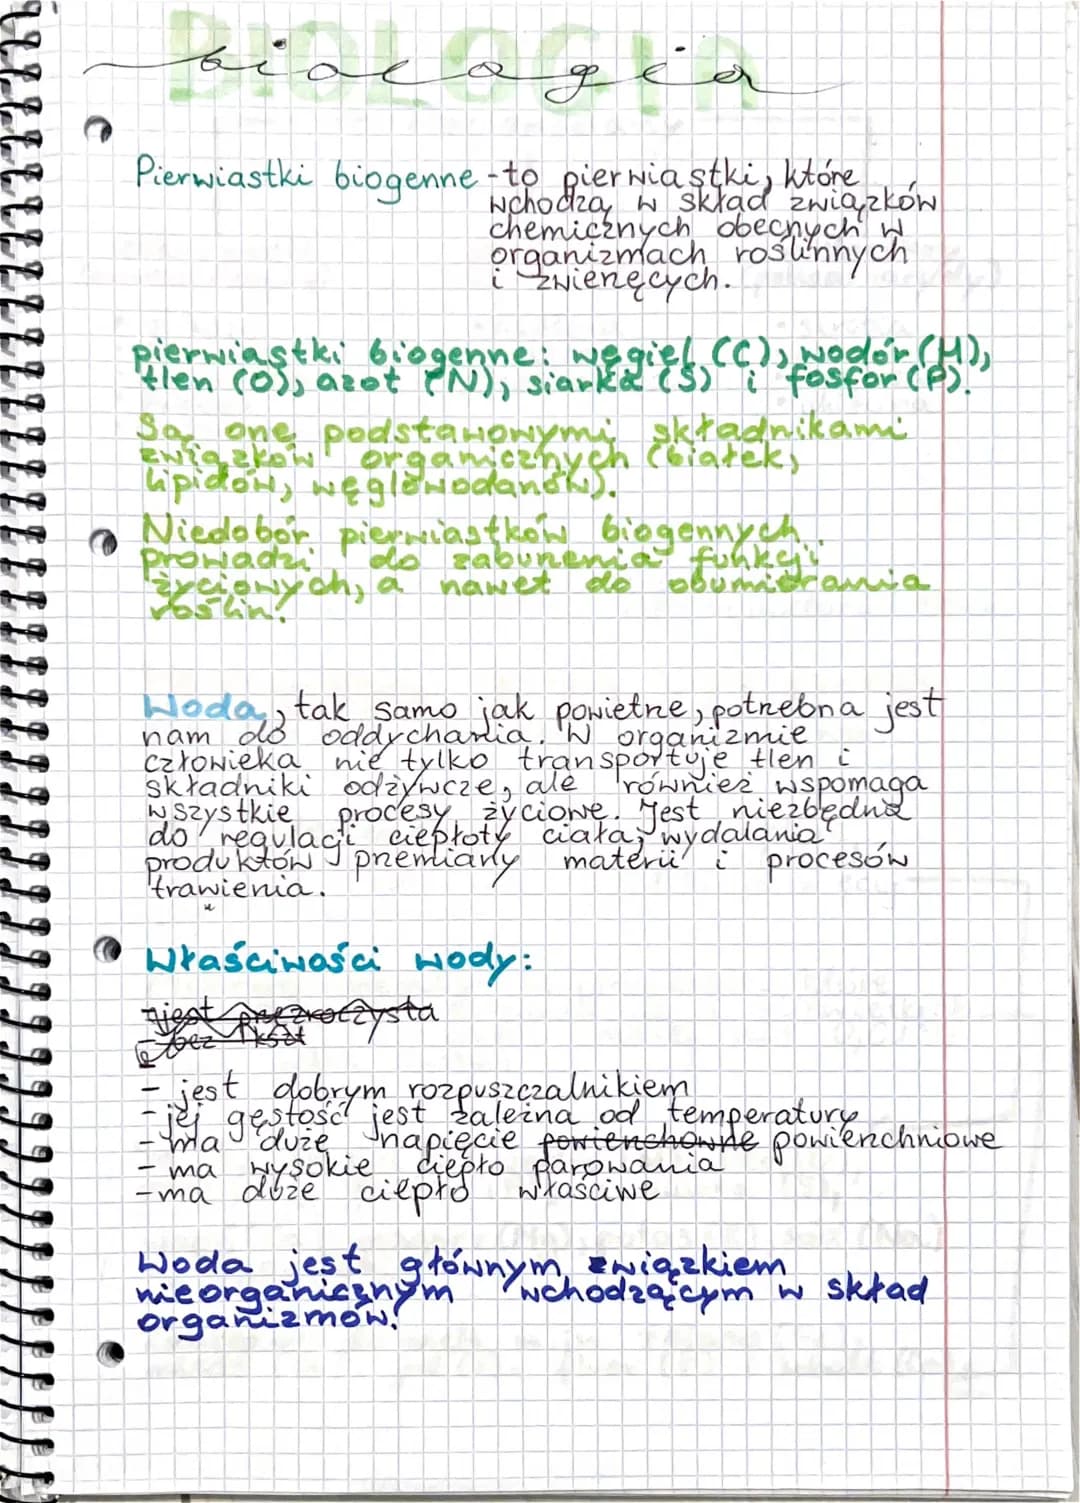 BIOLOGIA
biologia
Pierwiastki biogenne - to pierwiastki, które
wchodzą w skład związków
chemicznych obecnych w
organizmach roślinnych
i zwierzęcych.
pierwiastki biogenne: węgiel (C), wodór (H),
tlen (O), azot (N), siarka (S) i fosfor (P).
Są one podstawowymi składnikami
związków organicznych (białek,
lipidów, węglowodanów).
Niedobór pierwiastków biogennych
prowadzi do zaburzenia funkcji
życiowych, a nawet do obumierania
roślin!
Woda, tak samo jak powietrze, potrzebna jest
nam do oddychania. W organizmie
człowieka nie tylko transportuje tlen i
składniki odżywcze, ale również wspomaga
wszystkie procesy życiowe. Jest niezbędna
do regulacji ciepłoty ciała, wydalania
produktów przemiany materii i procesów
trawienia.
Właściwości wody:
jest przezroczysta
- bez kszt
- jest dobrym rozpuszczalnikiem
- jej gęstość jest zależna od temperatury
- ma duże napięcie powierzchowne powierzchniowe
- ma wysokie ciepło parowania
- ma duże ciepło właściwe
Woda jest głównym związkiem
nieorganicznym wchodzącym w skład
organizmów!